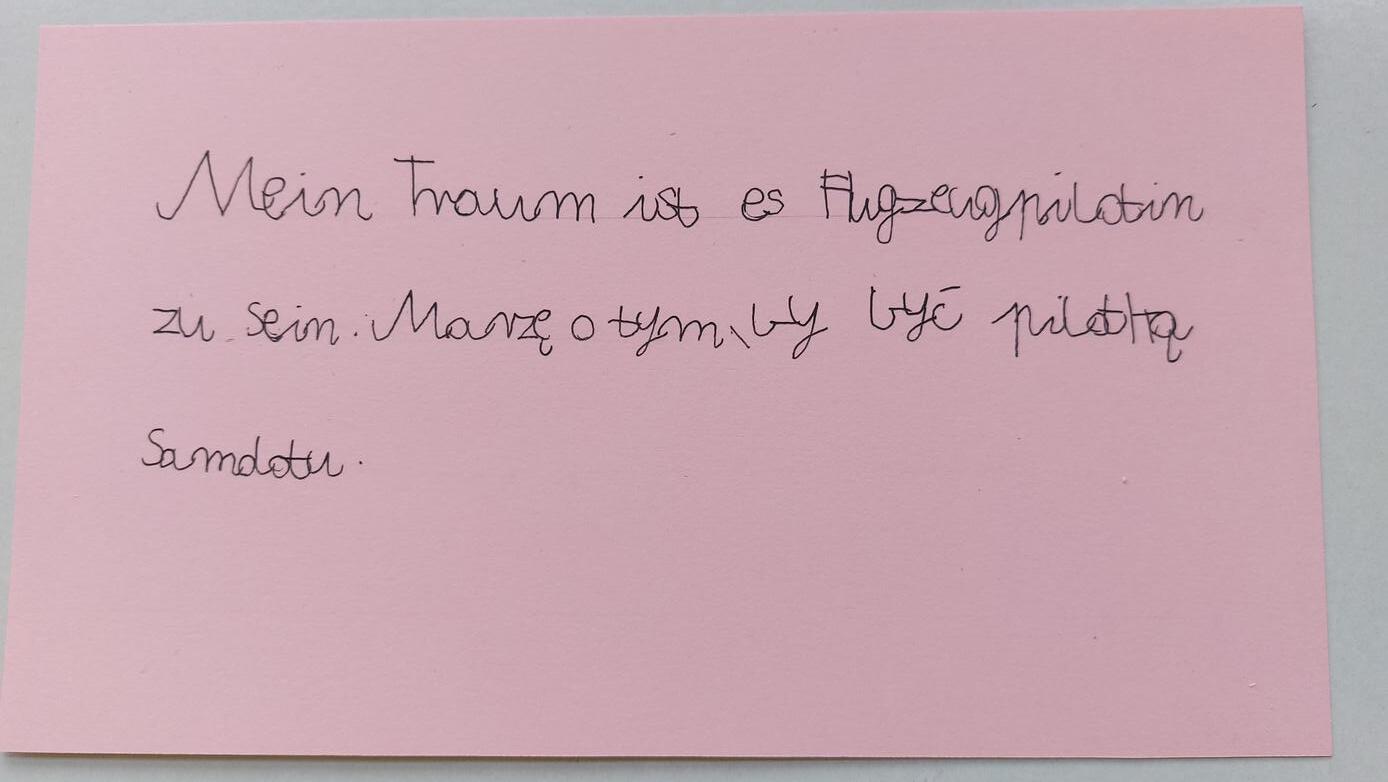 Mein Traum ist es Flugzeugpilotin
zu sein. Marzę o tym, by być pilotką
Samolotu.